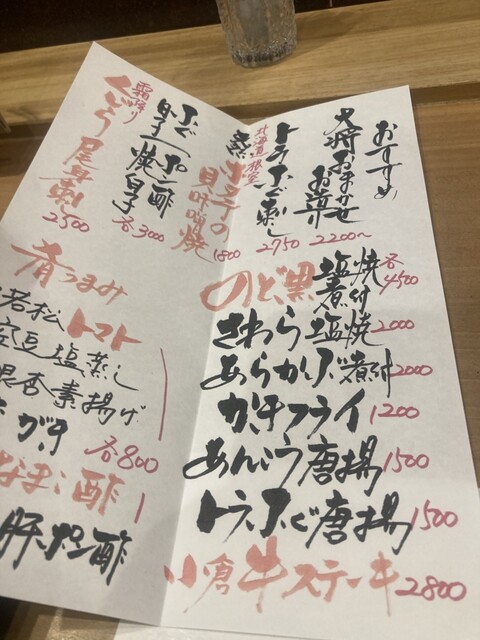 おすすめ
大将おまかせ
お造り
2200〜
トラふぐ刺し
2750
北海道根室
蒸ホヤの
貝味噌焼
1800
ふぐ
白子
ポン酢
焼白子
各3000
霜降り
くじら尾身刺
2500
のど黒塩焼
煮付
各4500
さわら塩焼 2000
あらかぶ煮付 2000
カキフライ 1200
あんこう唐揚 1500
トラふぐ唐揚 1500
小倉牛ステーキ 2800
肴つまみ
若松トマト
空豆塩蒸し
銀杏素揚げ
各800
なまこ酢
肝ポン酢